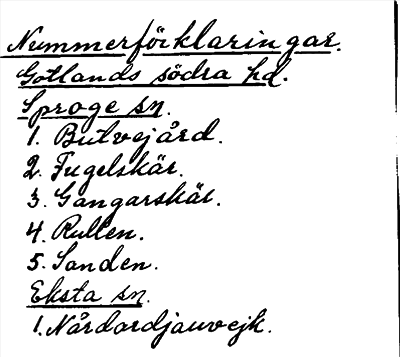 Nummerförklaringar.
Gotlands södra hd.
Sproge sn.
1. Butvejård.
2. Fugelskär.
3. Gangarskär.
4. Rullen.
5. Sanden.
Eksta sn.
1. Nårdardjauvejk.